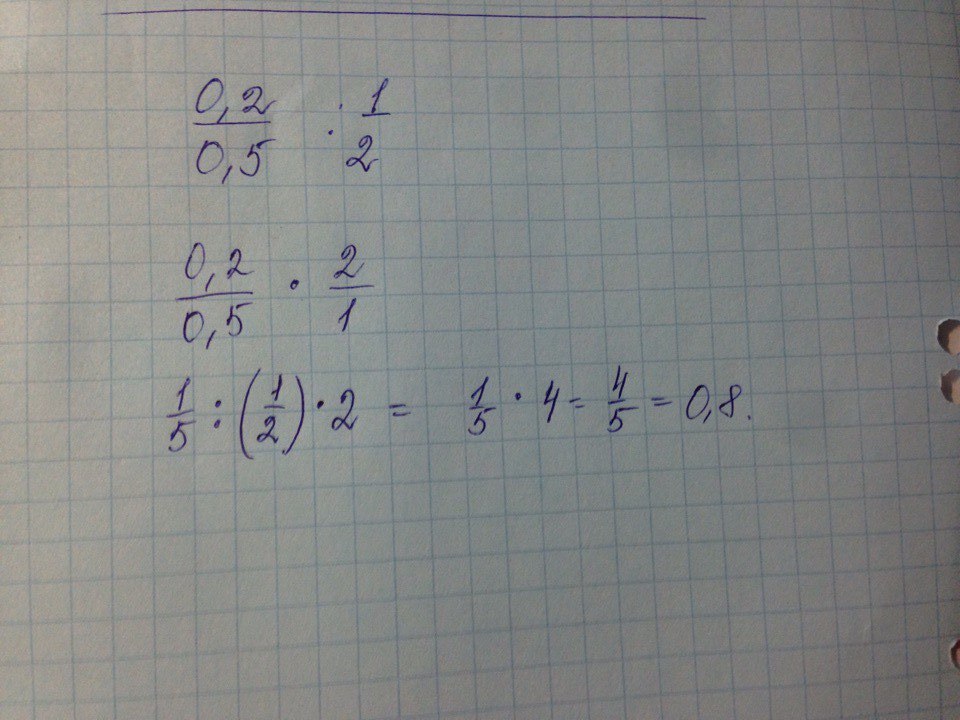 0,2/0,5 : 1/2
0,2/0,5 · 2/1
1/5 : (1/2) · 2 = 1/5 · 4 = 4/5 = 0,8.